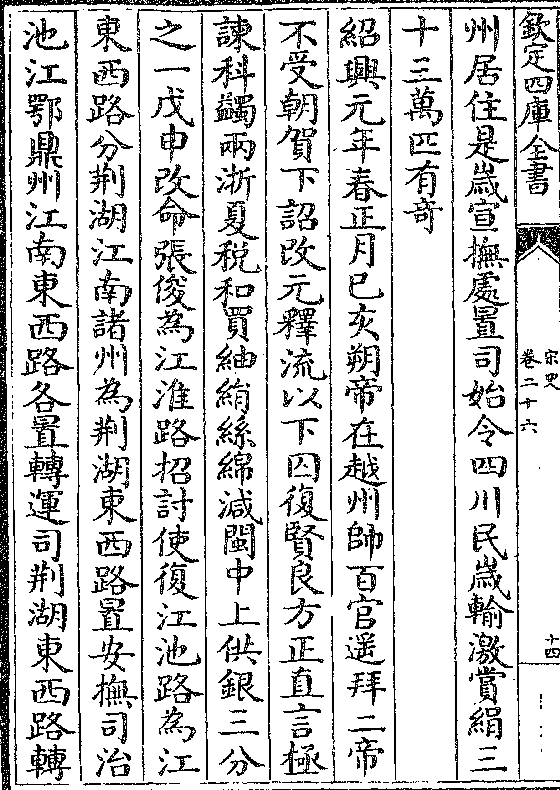 欽定四庫全書
宋史
卷二十六
十四
州居住是歲宣撫處置司始令四川民歲輸激賞絹三
十三萬匹有奇
紹興元年春正月己亥朔帝在越州帥百官遥拜二帝
不受朝賀下詔改元釋流以下囚復賢良方正直言極
諫科蠲兩浙夏稅和買紬絹絲綿減閩中上供銀三分
之一戊申改命張俊為江淮路招討使復江池路為江
東西路分荆湖江南諸州為荆湖東西路置安撫司治
池江鄂鼎州江南東西路各置轉運司荆湖東西路轉